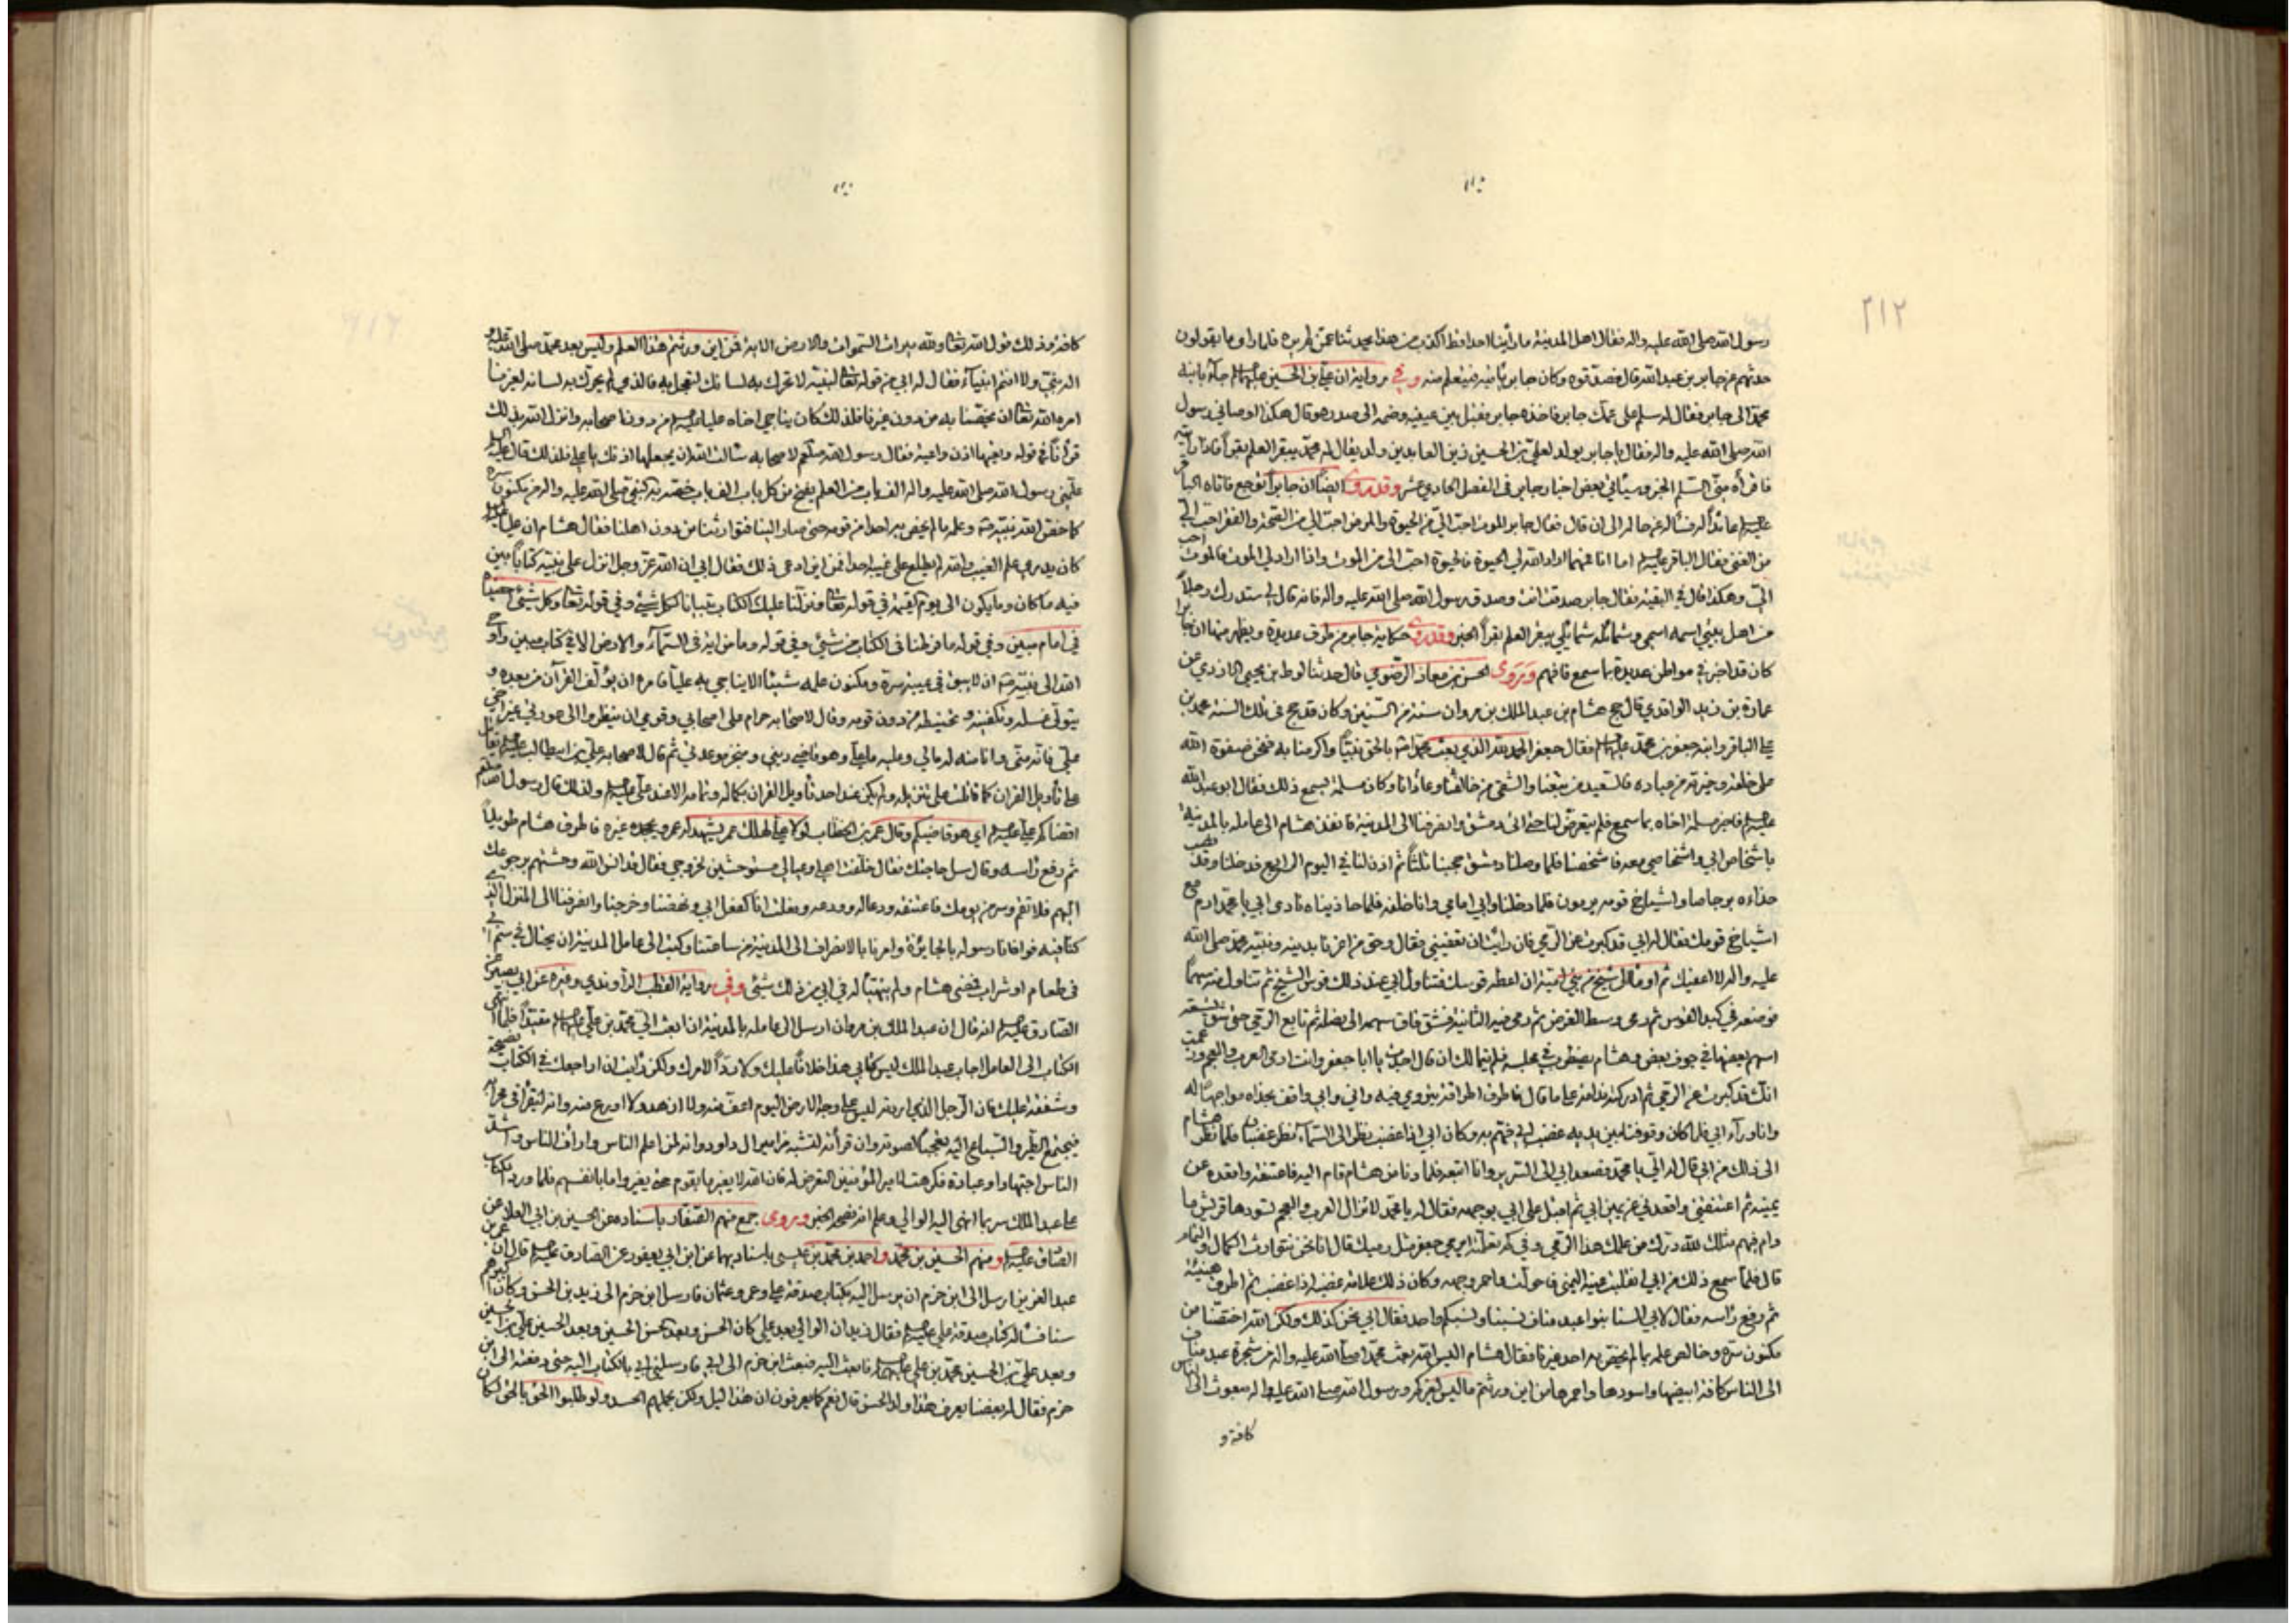 ٢١٢
رسول الله صلى الله عليه واله فقال اهل المدينة ما رأينا احدا قط اكذب من هذا يحدثنا عمن لم يره فلما راى ما يقولون
حدثهم عن جابر بن عبدالله قال فصدقوه وكان جابر يأتيه فيتعلم منه وفي رواية ان علي بن الحسين عليهما جاء بابنه
محمد الى جابر فقال له سلم على عمك جابر فاخذه جابر فقبل بين عينيه وضمه الى صدره وقال هكذا اوصاني رسول
الله صلى الله عليه واله فقال يا جابر يولد لعلي بن الحسين زين العابدين ولد يقال له محمد يبقر العلم بقرا فاذا رأيته
فاقرأه مني السلم الخبر وسيأتي بعض اخبار جابر في الفصل الحادي عشر وقد روى ايضا ان جابرا توجع فاتاه الباقر
عائدا له فسأله عن حاله الى ان قال فقال جابر الموت احب الي من الحيوة والمرض احب الي من الصحة والفقر احب الي
من الغنى فقال الباقر اما انا فمهما اراد الله لي الحيوة فالحيوة احب الي من الموت واذا اراد لي الموت فالموت احب
الي وهكذا قال في البقية فقال جابر صدقت انت وصدق رسول الله صلى الله عليه واله فانه قال لي ستدرك رجلا
من اهل بيتي اسمه اسمي وشمائله شمائلي يبقر العلم بقرا الخبر وقد روى حكاية جابر من طرق عديدة ويظهر منها ان جابرا
كان قد اخبر في مواطن عديدة بما سمع فافهم ويروى الحسن بن معاذ الرضوي قال حدثنا لوط بن يحيى الازدي عن
عمارة بن زيد الواقدي قال حج هشام بن عبد الملك بن مروان سنة من السنين وكان قد حج في تلك السنة محمد بن
علي الباقر وابنه جعفر بن محمد فقال جعفر الحمد لله الذي بعث محمدا بالحق نبيا واكرمنا به فنحن صفوة الله
على خلقه وخيرته من عباده فالسعيد من تبعنا والشقي من خالفنا وعادانا وكان مسلمة يسمع ذلك فقال ابو عبدالله
فاخبر مسلمة اخاه بما سمع فلم يتعرض لنا حتى اتى دمشق وانصرفنا الى المدينة فانفذ هشام الى عامله بالمدينة
باشخاص ابي واشخاصي معه فاشخصنا فلما وصلنا دمشق حجبنا ثلثا ثم اذن لنا في اليوم الرابع فدخلنا وقد نصب
حذاءه برجاصا واشياخ قومه يرمون فلما دخلنا وابي امامي وانا خلفه فلما حاذيناه نادى ابي يا محمد ارم مع
اشياخ قومك فقال له ابي قد كبرت عن الرمي فان رأيت ان تعفيني فقال وحق من اعزنا بدينه ونبيه محمد صلى الله
عليه واله لا اعفيك ثم اومأ الى شيخ من بني امية ان اعطه قوسك فتناول ابي عند ذلك قوس الشيخ ثم تناول منه سهما
فوضعه في كبد القوس ثم رمى وسط الغرض ثم رمى فيه الثانية فشق فاق سهمه الى نصله ثم تابع الرمي حتى شق تسعة
اسهم بعضها في جوف بعض وهشام يضطرب في مجلسه فلم يتمالك ان قال اجدت يا ابا جعفر وانت ارمى العرب والعجم وزعمت
انك قد كبرت عن الرمي ثم ادركته ندامة على ما قال فاطرق اطراقة يتروى فيه واني وابي واقف بحذاه مواجها له
وانا وراء ابي فلما كان وقوفنا بين يديه غضب ابي فهم به وكان ابي اذا غضب نظر الى السماء نظر غضبان فلما نظر هشام
الى ذلك من ابي قال له الي يا محمد فصعد ابي الى السرير وانا اتبعه فلما دنا من هشام قام اليه فاعتنقه واقعده عن
يمينه ثم اعتنقني واقعدني عن يمين ابي ثم اقبل على ابي بوجهه فقال له يا محمد لا تزال العرب والعجم تسودها قريش ما
دام فيهم مثلك لله درك من علمك هذا الرمي وفي كم تعلمته ايرمي جعفر مثل رميك قال انا نحن نتوارث الكمال والتمام
قال فلما سمع ذلك من ابي انقلبت عينه اليمنى فاحولت واحمر وجهه وكان ذلك علامة غضبه اذا غضب ثم اطرق هنيئة
ثم رفع رأسه فقال لابي السنا بنوا عبد مناف نسبنا ونسبكم واحد فقال ابي نحن كذلك ولكن الله اختصنا من
مكنون سره وخالص علمه بما لم يختص به احد غيرنا فقال هشام اليس الله بعث محمدا صلى الله عليه واله من شجرة عبد مناف
الى الناس كافة ابيضها واسودها واحمرها من اين ورثتم ما ليس لغيركم ورسول الله صلى الله عليه واله مبعوث الى الناس
كافة و
كافة وذلك قول الله تعالى ولله ميراث السموات والارض الاية فمن اين ورثتم هذا العلم وليس بعد محمد صلى الله عليه و
اله نبي ولا انتم انبياء فقال له ابي من قوله تعالى لنبيه لا تحرك به لسانك لتعجل به فالذي لم يحرك به لسانه لغيرنا
امره الله تعالى ان يخصنا به من دون غيرنا فلذلك كان يناجي اخاه عليا من دون اصحابه وانزل الله بذلك
قرآنا في قوله وتعيها اذن واعية فقال رسول الله صلعم لاصحابه سألت الله ان يجعلها اذنك يا علي فلذلك قال علي
علمني رسول الله صلى الله عليه واله الف باب من العلم يفتح من كل باب الف باب خصه به النبي صلى الله عليه واله من مكنون سره
كما خص الله نبيه وعلمه ما لم يخص به احدا من قومه حتى صار الينا فتوارثنا من دون اهلنا فقال هشام ان عليا
كان يدعي علم الغيب والله لم يطلع على غيبه احدا فمن اين ادعى ذلك فقال ابي ان الله عز وجل انزل على نبيه كتابا بين
فيه ما كان وما يكون الى يوم القيمة في قوله تعالى ونزلنا عليك الكتاب تبيانا لكل شيء وفي قوله تعالى وكل شيء احصيناه
في امام مبين وفي قوله ما فرطنا في الكتاب من شيء وفي قوله وما من غائبة في السماء والارض الا في كتاب مبين واوحى
الله الى نبيه ان لا يبقى في غيبه سره ومكنون علمه شيئا الا يناجي به عليا فامره ان يؤلف القرآن من بعده و
يتولى غسله وتكفينه وتحنيطه من دون قومه وقال لاصحابه حرام على اصحابي وقومي ان ينظروا الى عورتي غير اخي
علي فانه مني وانا منه له مالي وعليه ما علي وهو قاضي ديني ومنجز موعدي ثم قال لاصحابه علي بن ابيطالب يقاتل
على تأويل القران كما قاتلت على تنزيله ولم يكن عند احد تأويل القران بكماله وتمامه الا عند علي ولذلك قال رسول الله صلعم
اقضاكم علي اي هو قاضيكم وقال عمر بن الخطاب لولا علي لهلك عمر يشهد له عمر ويجحده غيره فاطرق هشام طويلا
ثم رفع رأسه وقال سل حاجتك فقال خلفت اهلي وعيالي مستوحشين لخروجي فقال قد انس الله وحشتهم برجوعك
اليهم فلا تقم وسر من يومك فاعتنقه ودعا له وودعه وفعلت انا كفعل ابي ونهضنا وخرجنا وانصرفنا الى المنزل الذي
كنا فيه فوافانا رسوله بالجائزة وامرنا بالانصراف الى المدينة من ساعتنا وكتب الى عامل المدينة ان يحتال في سم ابي
في طعام او شراب فمضى هشام ولم يتهيأ له في ابي من ذلك شيء وفي رواية القطب الراوندي وغيره عن ابي بصير عن
الصادق انه قال ان عبد الملك بن مروان ارسل الى عامله بالمدينة ان ابعث الي محمد بن علي مقيدا فلما انتهى
الكتاب الى العامل اجاب عبد الملك ليس كتابي هذا خلافا عليك ولا ردا لامرك ولكن رأيت ان اراجعك في الكتاب نصيحة
وشفقة عليك فان الرجل الذي اردته ليس على وجه الارض اليوم اعف منه ولا ازهد ولا اورع منه وانه ليقرأ في محرابه
فيجتمع الطير والسباع اليه تعجبا لصوته وان قرأته لتشبه مزامير ال داود وانه لمن اعلم الناس وارأف الناس واشد
الناس اجتهادا وعبادة فكرهت لامير المؤمنين التعرض له فان الله لا يغير ما بقوم حتى يغيروا ما بانفسهم فلما ورد الكتاب
على عبد الملك سر بما انهى اليه الوالي وعلم انه نصحه الخبر ويروى جمع منهم الصفار باسناده عن الحسين بن ابي العلا عن
الصادق ومنهم الحسين بن محمد واحمد بن محمد بن عيسى باسناديهما عن ابن ابي يعفور عن الصادق قال ان عمر بن
عبد العزيز ارسل الى ابن حزم ان يرسل اليه بكتاب صدقة علي وعمر وعثمان فارسل ابن حزم الى زيد بن الحسن وكان اكبرهم
سنا فسأله كتاب صدقة علي فقال زيد ان الوالي بعد علي كان الحسن وبعد الحسن الحسين وبعد الحسين علي بن الحسين
وبعد علي بن الحسين محمد بن علي فابعث اليه فبعث ابن حزم الى ابي فارسلني ابي بالكتاب اليه حتى دفعته الى ابن
حزم فقال له بعضنا يعرف هذا ولد الحسن قال نعم كما يعرفون ان هذا ليل ولكن يحملهم الحسد ولو طلبوا الحق بالحق لكان